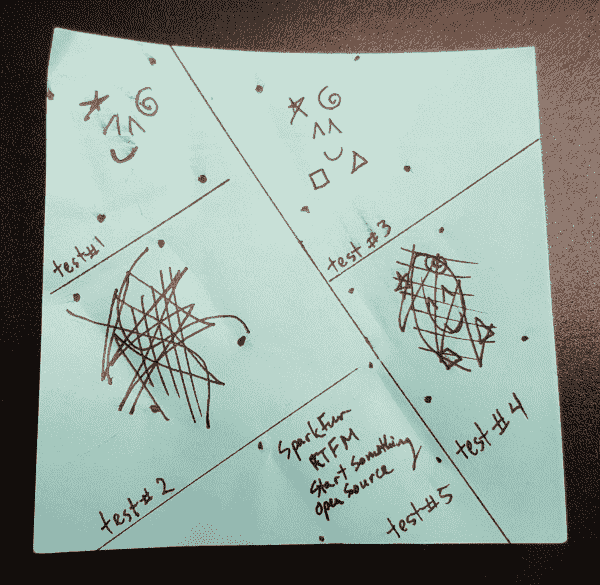 test#1
test #3
test# 2
test #4
SparkFun
RTFM
Start Something
open source
test #5